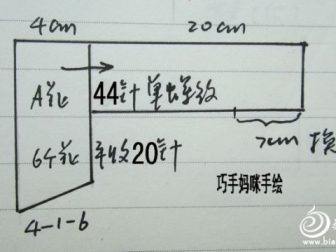 4cm 20cm
A花 44针 单螺纹
7cm 换
6个花 平收20针
巧手妈咪手绘
4-1-6